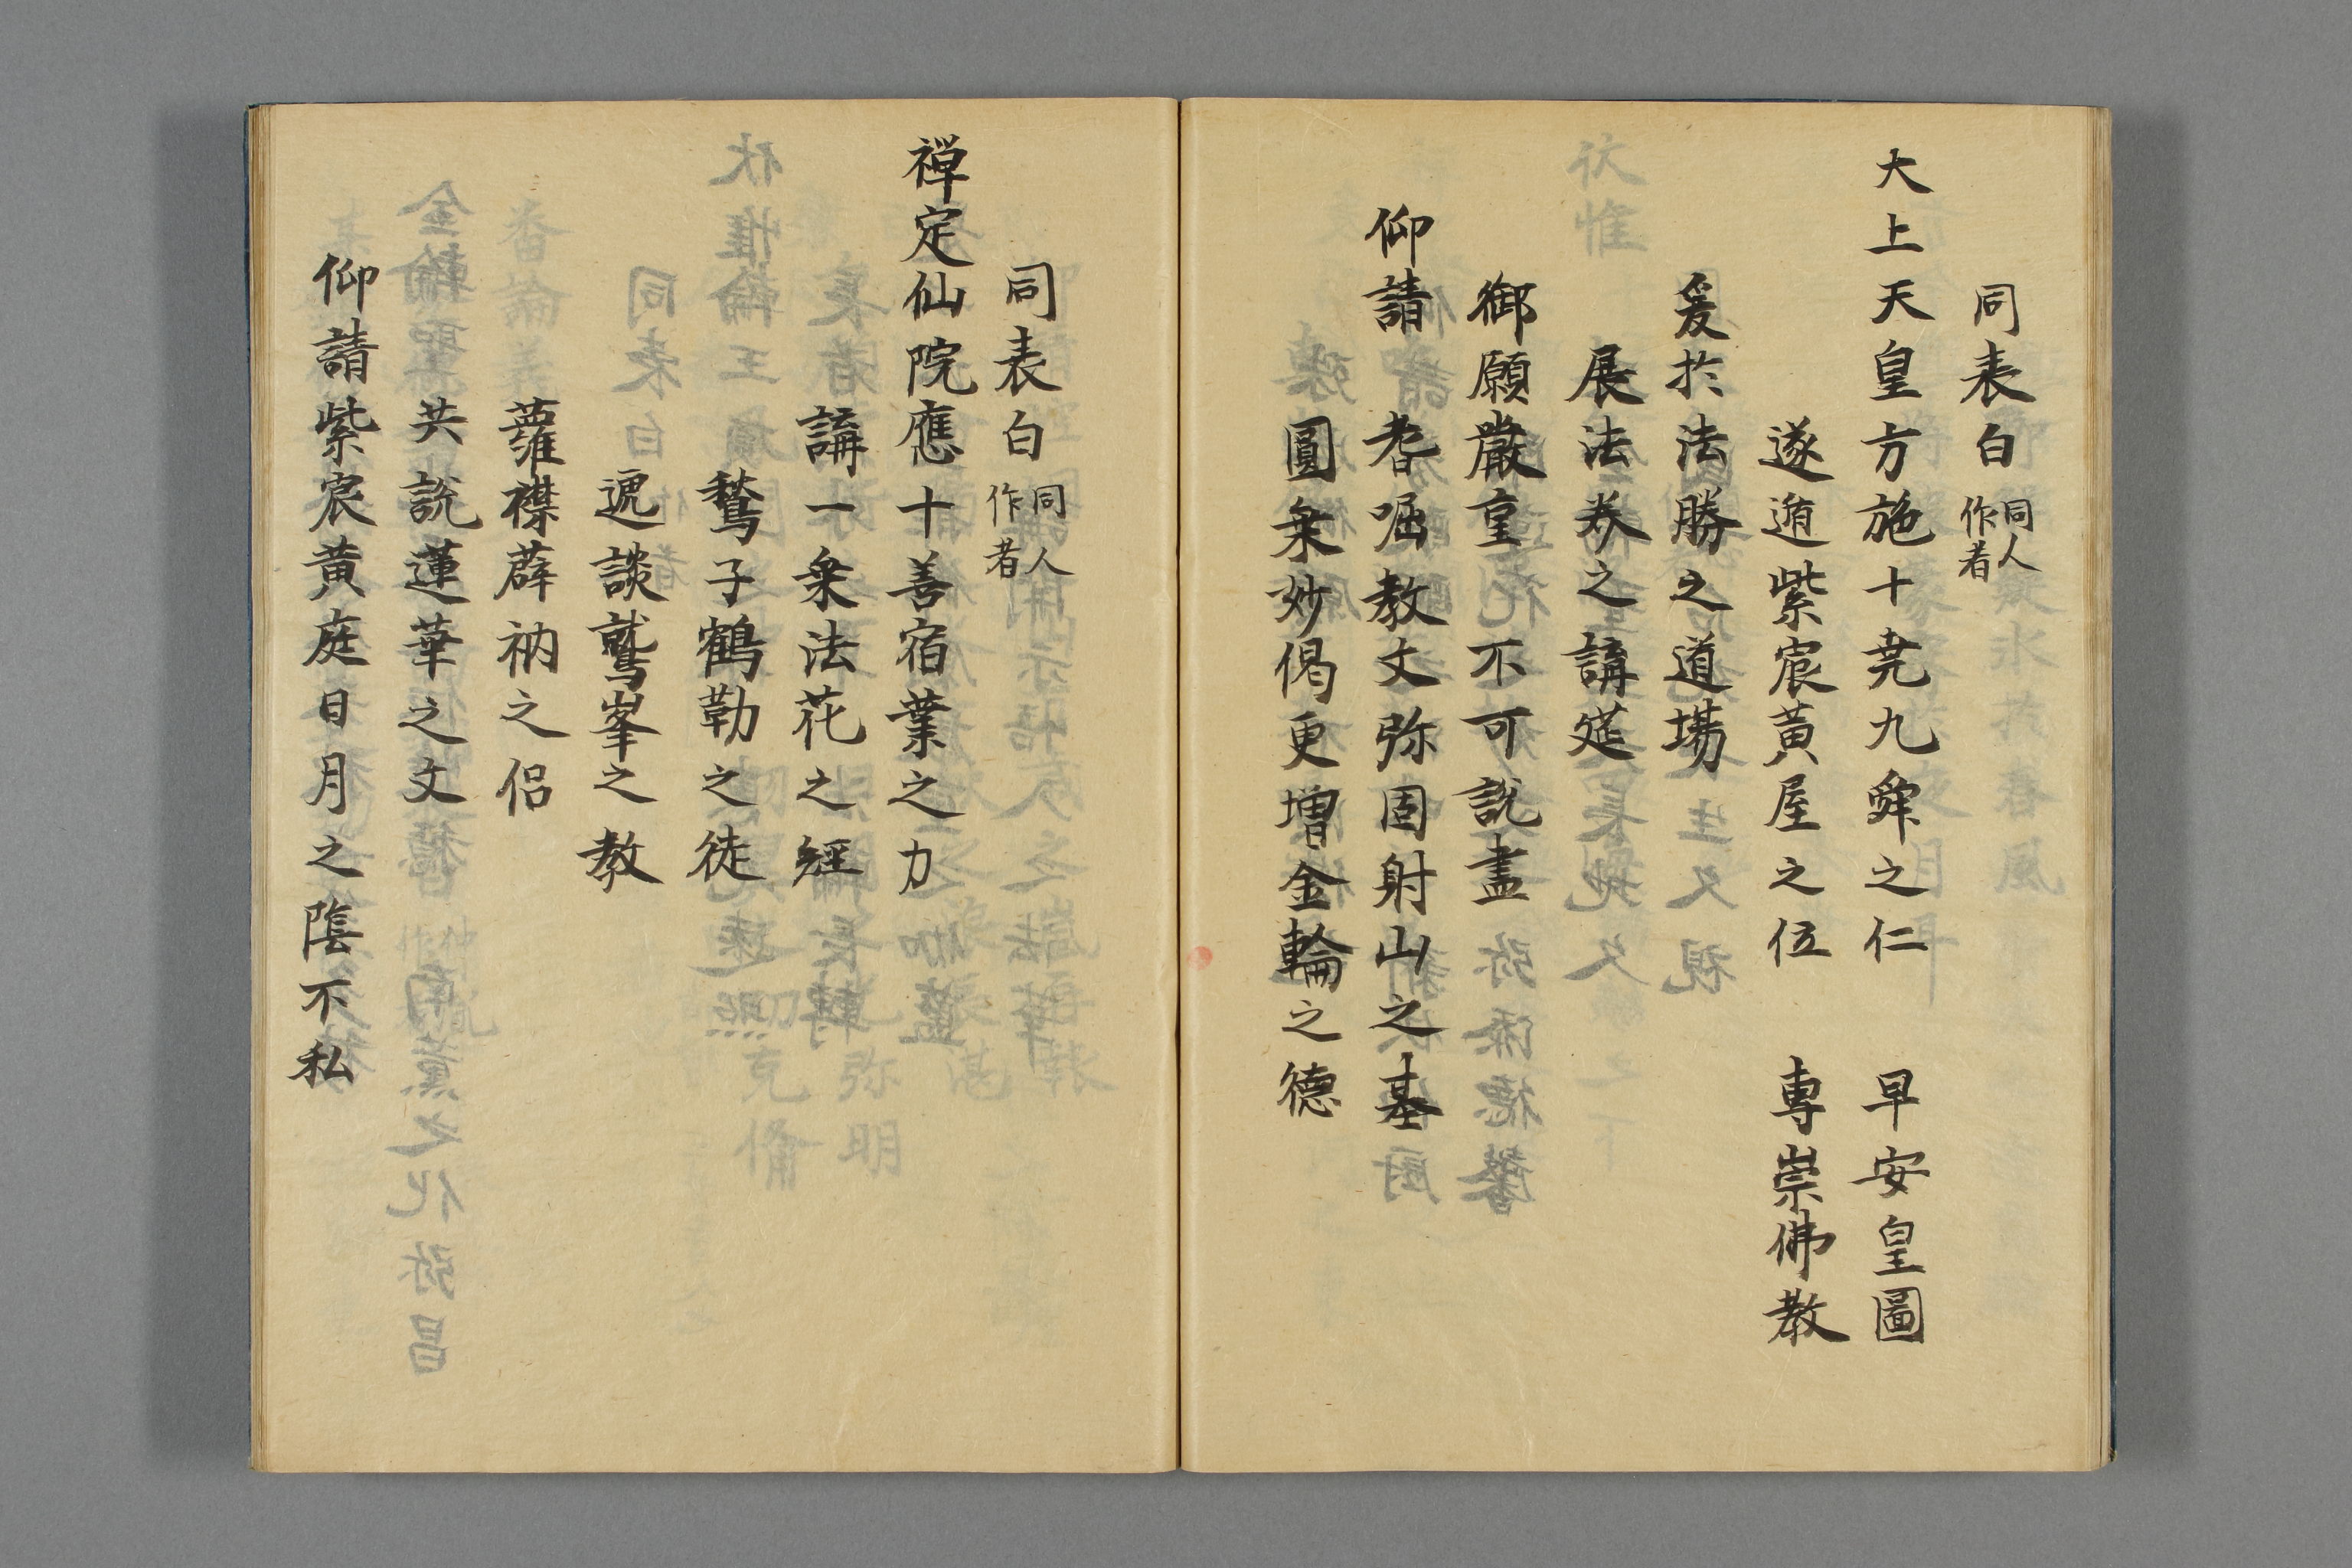 同表白 同人作者
大上天皇方施十尭九舜之仁 早安皇圖
遂遁紫宸黄屋之位 専崇佛教
爰於法勝之道場
展法券之講筵
御願嚴重 不可説盡
仰請 耆崛教文弥固射山之基
圓乗妙偈更増金輪之德
同表白 同人作者
禅定仙院應十善宿業之力
講一乗法花之經
鶖子鶴勒之徒
遞談鷲峯之教
蘿襟薜衲之侶
共説蓮華之文
仰請紫宸黄庭日月之陰不私